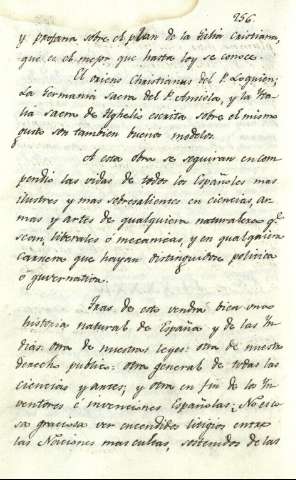 256.
y profana sobre el plan de la Galia Cristiana,
que es el mejor que hasta hoy se conoce.
El oriens Christianus del P. Lequien;
La Germania sacra del P. Ansicla, y la Ita
lia sacra de Ughelio escrita sobre el mismo
gusto son tambien buenos modelos.
A esta obra se seguiran en com-
pendio las vidas de todos los Españoles mas
ilustres y mas sobresalientes en ciencias, ar-
mas y artes de qualquiera naturaleza qe.
sean, liberales ò mecanicas, y en qualquiera
carrera que hayan distinguidose politica
ò guvernativa.
Tras de esto vendrá bien una
historia natural de España y de las In-
dias: otra de nuestras leyes: otra de nuestro
derecho publico: otra general de todas las
ciencias y artes; y otra en fin de los In-
ventores è invenciones Españolas; No es co
sa graciosa ver encendidos litigios entre
las Naciones mas cultas, sostenidos de las